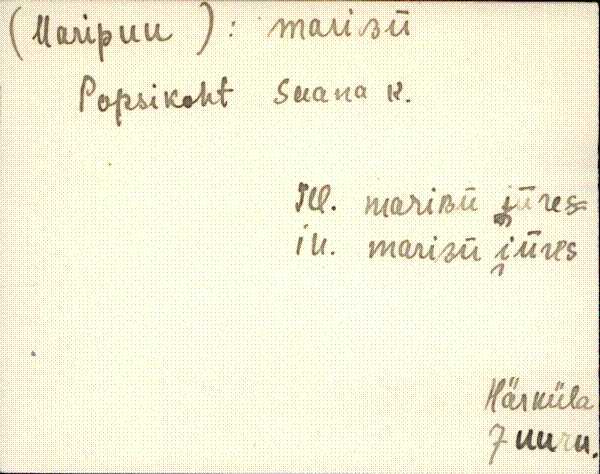 (Maripuu): marisū
Popsikoht Saana k.
Ill. marisū jūres
in. marisū jūres
Härküla
Juuru.